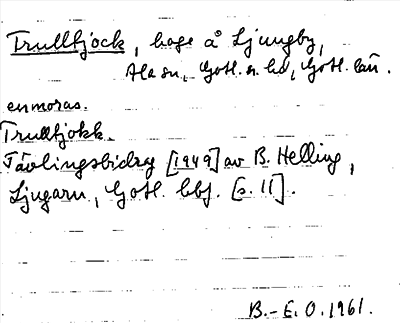 Trullbjock, hage å Ljungby,
Ala sn, Gotl. n. hd, Gotl. län.
enmoras.
Trullbjokk.
Tävlingsbidrag [1949] av B. Helling,
Ljugarn, Gotl. bbf. [s. 11].
B.-E.O. 1961.